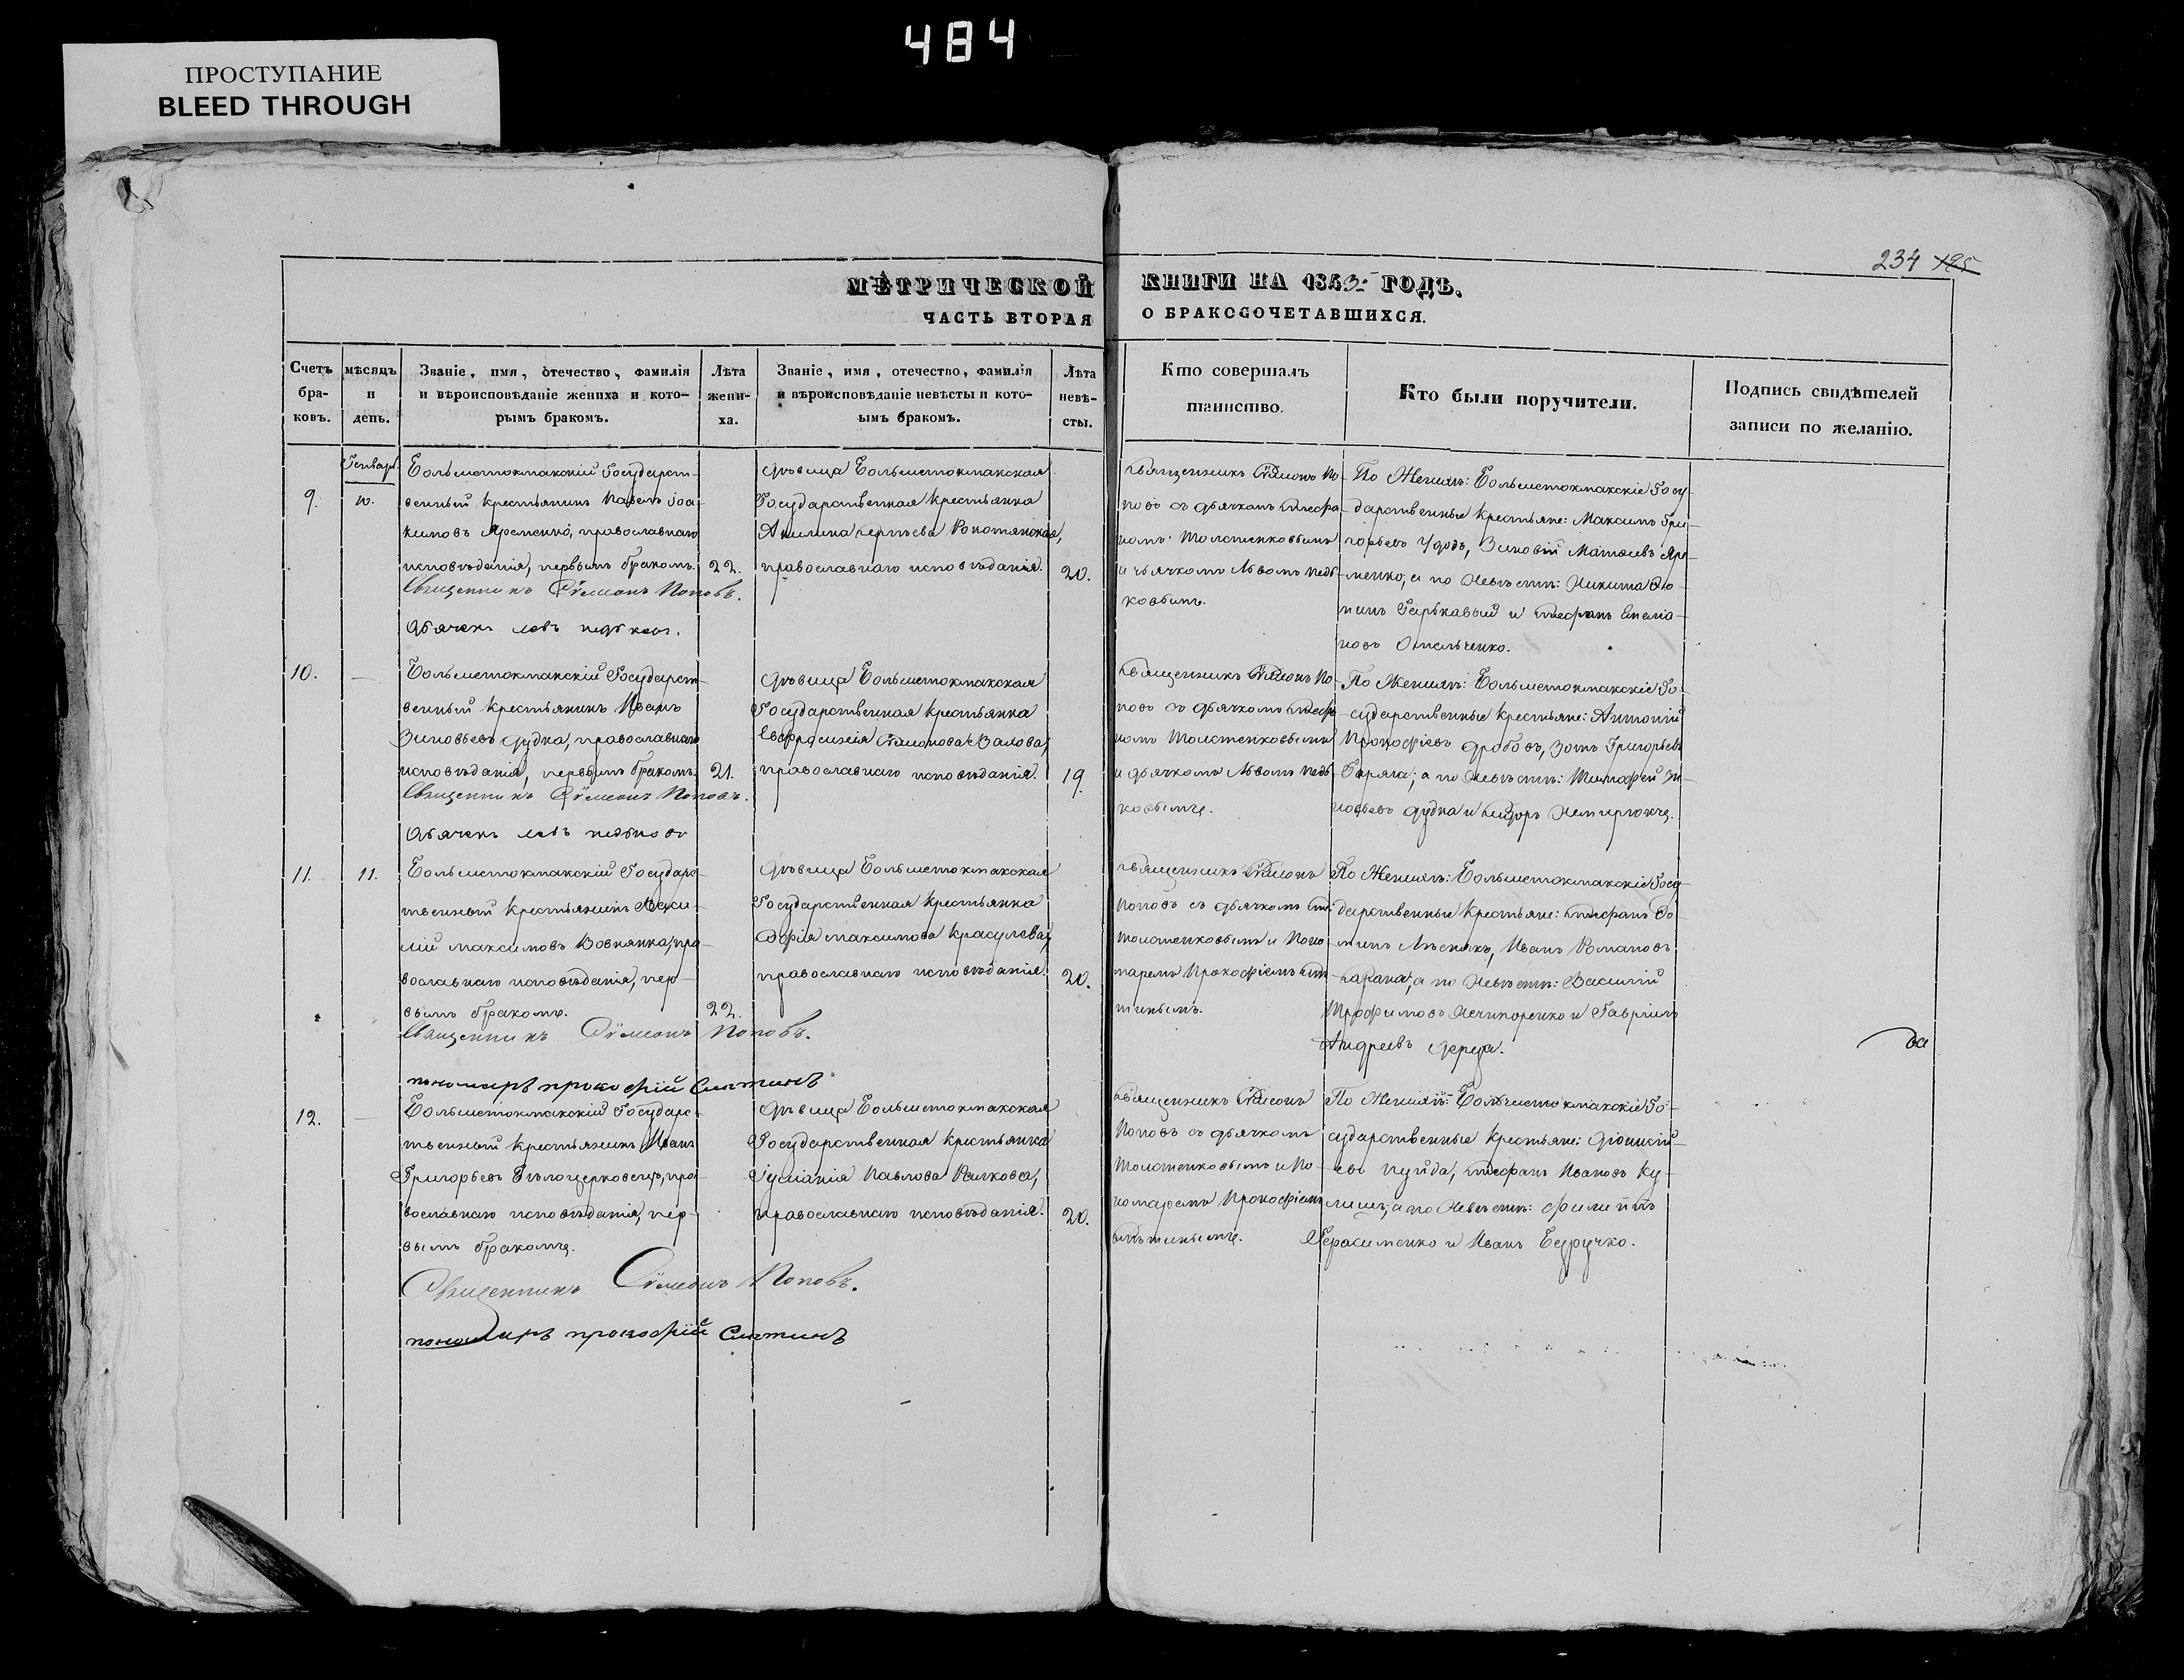 484
ПРОСТУПАНИЕ
BLEED THROUGH
234 185
МЕТРИЧЕСКОЙ КНИГИ НА 1843 ГОДЪ.
ЧАСТЬ ВТОРАЯ О БРАКОСОЧЕТАВШИХСЯ.
Счетъ бра-ковъ.
мѣсяцъ и день.
Званіе, имя, отечество, фамилія
и вѣроисповѣданіе жениха и кото-
рымъ бракомъ.
Лѣта жени-ха.
Званіе, имя, отечество, фамилія
и вѣроисповѣданіе невѣсты и кото-
ымъ бракомъ.
Лѣта невѣ-сты.
Кто совершалъ
таинство.
Кто были поручители.
Подпись свидѣтелей
записи по желанію.
Генварь
9. 10.
Большетокмакскій Государст-
венный крестьянинъ Павелъ Іоа-
кимовъ Яременко, православнаго
исповѣданія, первымъ бракомъ. 22.
Священникъ Сѵмеонъ Поповъ.
Дьячекъ Левъ
дѣвица Большетокмакская
Государственная крестьянка
православнаго исповѣданія. 20.
Священникъ Сѵмеонъ По-
повъ съ дьячкомъ Стефа-
номъ Толстенковымъ
и дьячкомъ Львомъ
ковымъ.
По Женихѣ: Большетокмакскіе Госу-
дарственные крестьяне: Максимъ Гри-
горьевъ Удодъ, Зиновій Матѳіевъ Яре-
менко, а по Невѣстѣ: Никита Ѳо-
минъ Гарькавый и Стефанъ Емелiа-
новъ Омельченко.
10. —
Большетокмакскій Государст-
венный крестьянинъ Иванъ
Зиновьевъ Дудка, православнаго
исповѣданія, первымъ бракомъ. 21.
Священникъ Сѵмеонъ Поповъ.
Дьячекъ Левъ
дѣвица Большетокмакская
Государственная крестьянка
Евфросинія Сѵмеонова Валова,
православнаго исповѣданія. 19.
Священникъ Сѵмеонъ По-
повъ съ дьячкомъ Стефа-
номъ Толстенковымъ
и дьячкомъ Львомъ
ковымъ.
По Женихѣ: Большетокмакскіе Го-
сударственные крестьяне: Антоній
Прокофіевъ Дробовъ, Зотъ Григорьевъ
а по Невѣстѣ: Тимофей Зи-
новьевъ Дудка и
11. 11.
Большетокмакскій Государс-
твенный крестьянинъ
лій Максимовъ Вовнянка, пра-
вославнаго исповѣданія, пер-
вымъ бракомъ. 22.
Священникъ Сѵмеонъ Поповъ.
пономарь прокофій Смтинъ
дѣвица Большетокмакская
Государственная крестьянка
Софія Максимова Красулева,
православнаго исповѣданія. 20.
Священникъ Сѵмеонъ
Поповъ съ дьячкомъ
Толстенковымъ и Поно-
маремъ Прокофіемъ
тинымъ.
По Женихѣ: Большетокмакскіе Госу-
дарственные крестьяне: Стефанъ Ѳо-
минъ Лѣснякъ, Иванъ Романовъ
а по Невѣстѣ: Василій
Трофимовъ Нечипоренко и Гавріилъ
Андреевъ Середа.
12. —
Большетокмакскій Государс-
твенный крестьянинъ Иванъ
Григорьевъ Бѣлоцерковецъ, пра-
вославнаго исповѣданія, пер-
вымъ бракомъ.
Священникъ Сѵмеонъ Поповъ.
пономарь прокофій
дѣвица Большетокмакская
Государственная крестьянка
Іуліанія Павлова Валкова,
православнаго исповѣданія. 20.
Священникъ Сѵмеонъ
Поповъ съ дьячкомъ
Толстенковымъ и По-
номаремъ Прокофіемъ
По Женихѣ: Большетокмакскіе Го-
сударственные крестьяне: Діонисій
Стефанъ Ивановъ Ку-
лишъ; а по Невѣстѣ: Филиппъ
Герасименко и Иванъ Безручко.